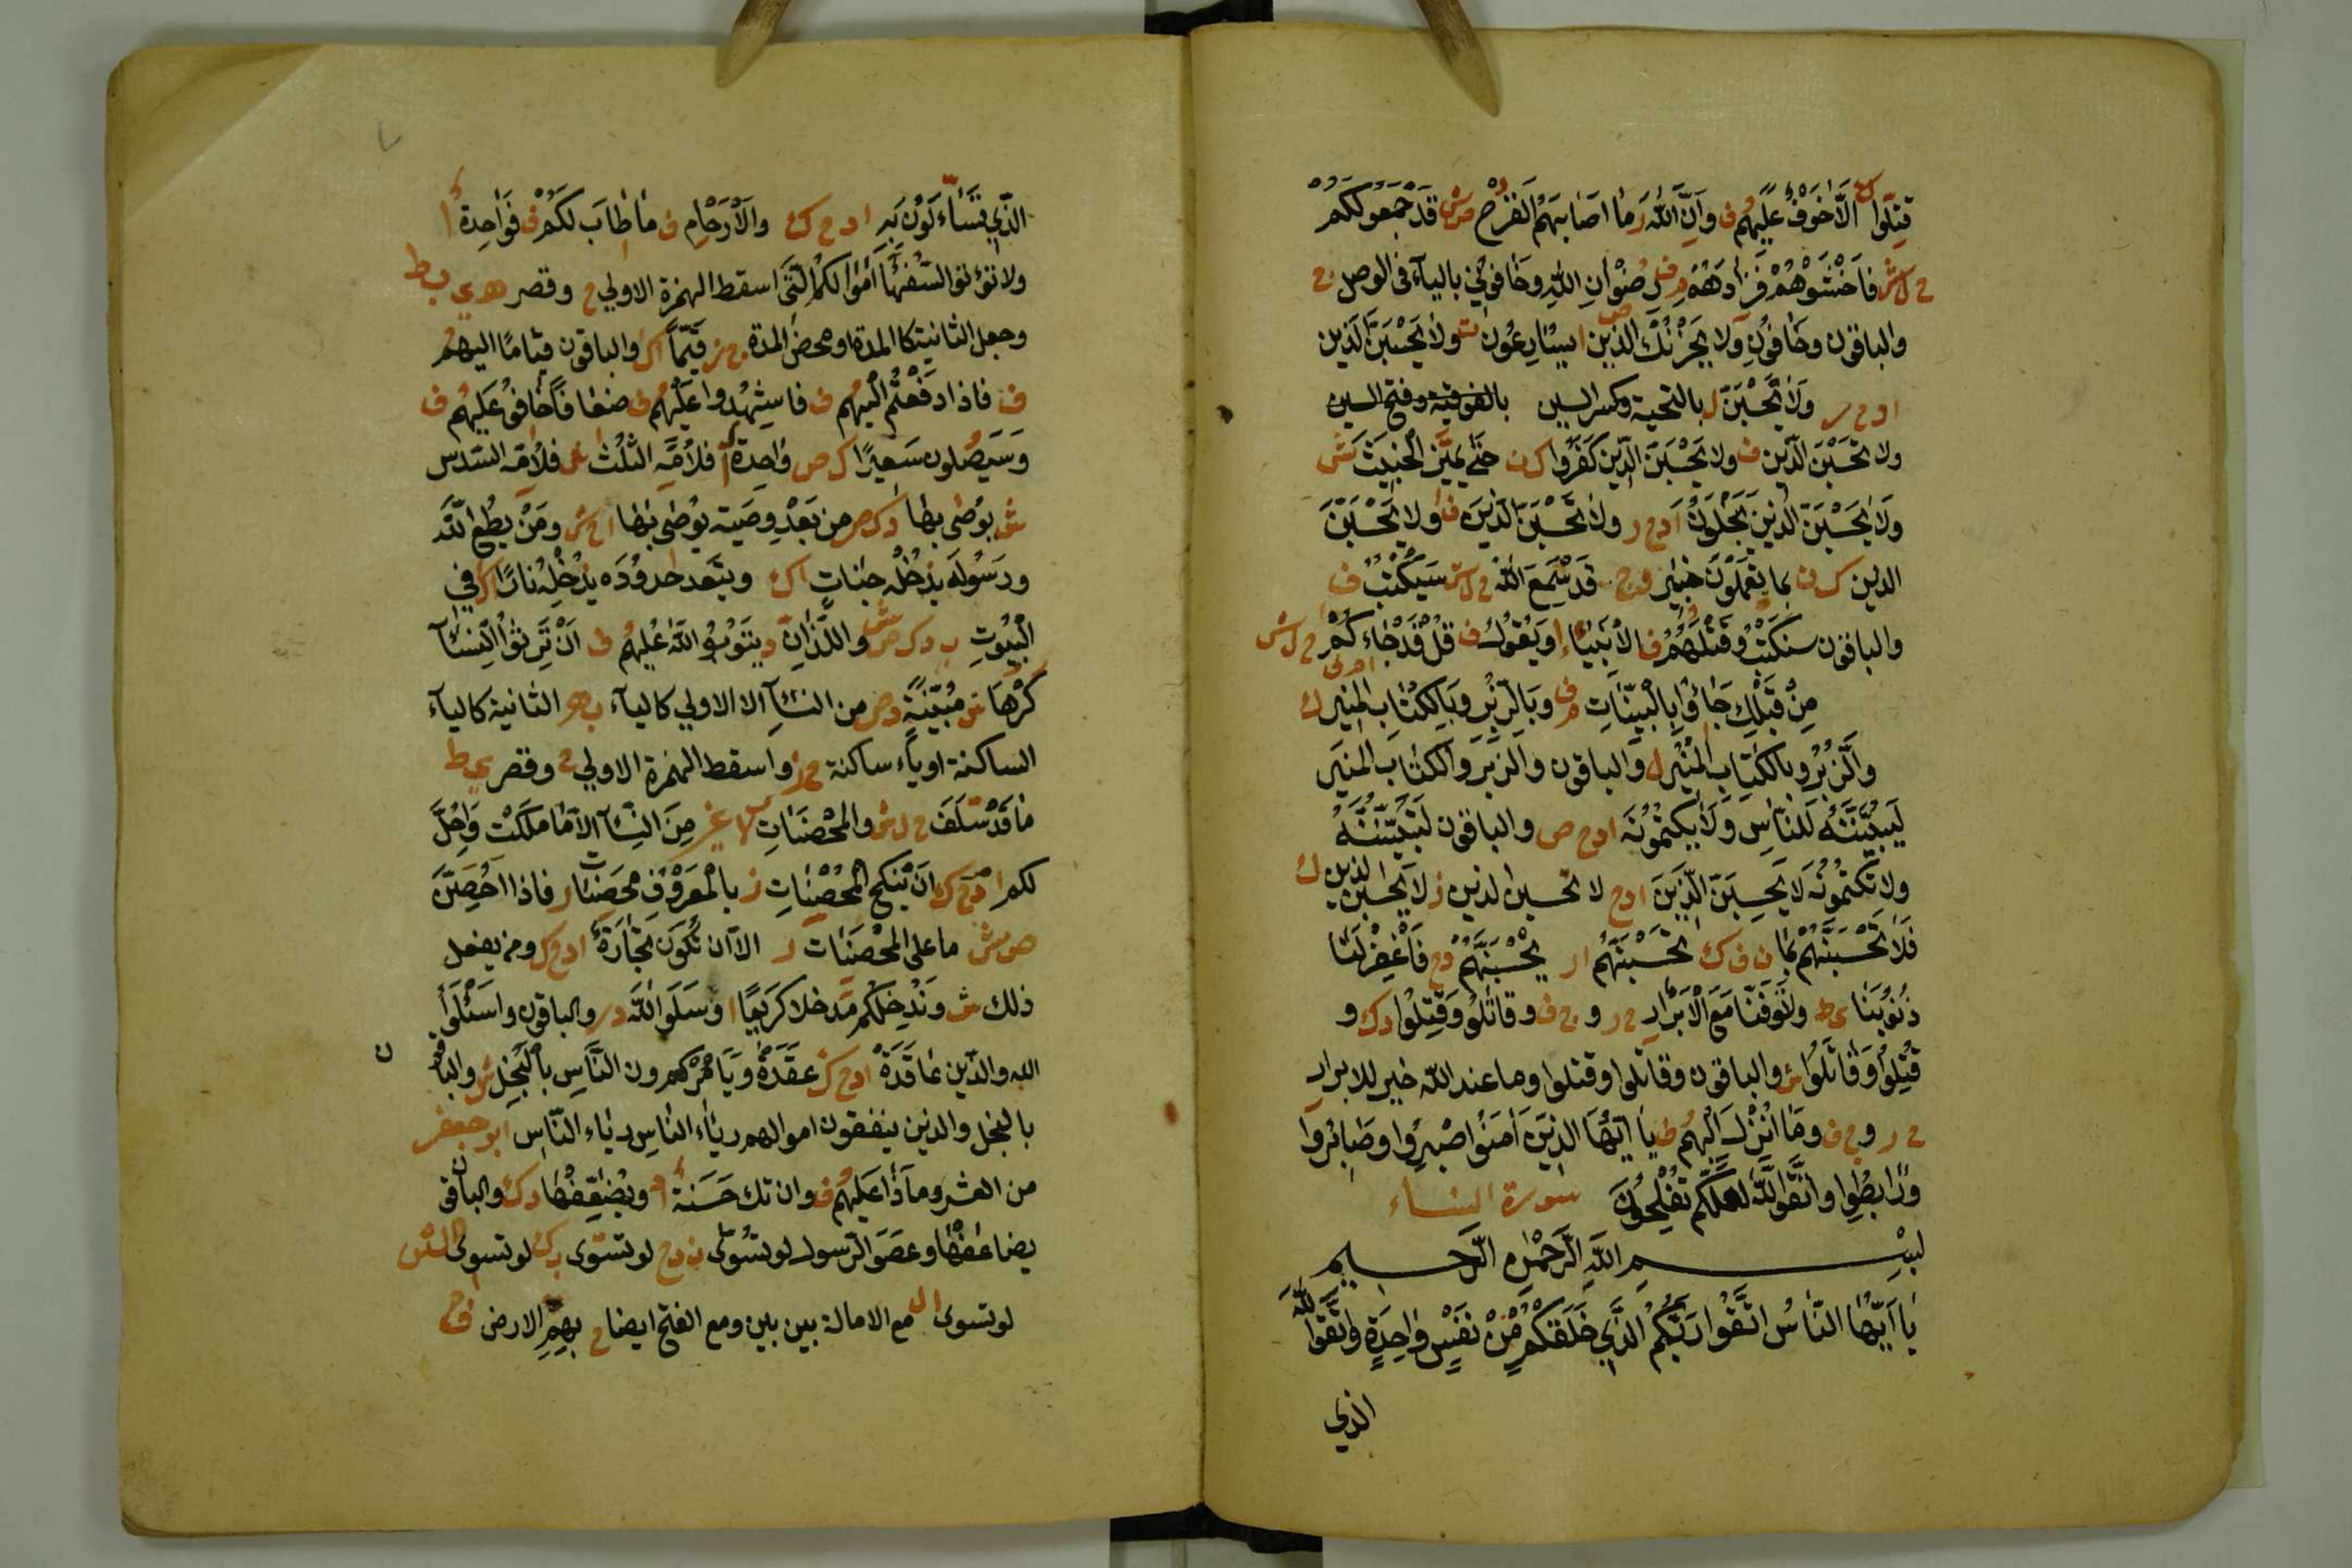 قتلوا الاخوف عليهم ف وان الله ر ما اصابهم القرح ص ش قد جمعو لكم
ح ل ش فاخشوهم فزادهم ف رضوان الله وخافوني بالياء في الوصل ح
والباقون وخافون ولا يحزنك الذين ا يسارعون ت ولا يحسبن الذين
ا د ح ر ولا يحسبن ل بالتحية وكسر السين بالفوقية وفتح السين
ولا تحسبن الذين ف ولا يحسبن الذين كفروا ك ن حتى يميز الخبيث ش
ولا يحسبن الذين يبخلون ا د ح ر ولا تحسبن الذين ف ولا يحسبن
الذين ك ن بما يعملون خبير د ح قد سمع الله ح ل ش سيكتب ف
والباقون سنكتب وقتلهم ف الانبياء ا ويقول ف قل قد جاءكم ح ل ش
من قبلك جاؤا بالبينات م ف وبالزبر وبالكتاب المنير ك
والزبر وبالكتاب المنير ل والباقون والزبر والكتاب المنير
ليبيننه للناس ولا يكتمونه ا د ح ص والباقون لتبيننه
ولا تكتمونه لا يحسبن الذين ا د ح لا تحسبن الذين ز لا يحسبن الذين ك
فلا تحسبنهم بما ن ف ك تحسبنهم ا ر يحسبنهم د ح فاغفر لنا
ذنوبنا ى ط وتوفنا مع الابرار ح ر و ج ف وقاتلوا وقتلوا د ك و
قتلوا وقاتلوا ش والباقون وقاتلوا وقتلوا وما عند الله خير للابرار
ح ر و ج ف وما انزل اليهم ف يا ايها الذين آمنوا اصبروا وصابروا
ورابطوا واتقوا الله لعلكم تفلحون سورة النساء
بسم الله الرحمن الرحيم
يا ايها الناس اتقوا ربكم الذي خلقكم من نفس واحدة واتقوا الله
الذي
الذي تساءلون به ا د ح ك والارحام ف ما طاب لكم ف فواحدة ا
ولا تؤتوا السفهاء اموالكم التي اسقط الهمزة الاولي ح وقصر ه ى ب ط
وجعل الثانية كالمدة او محض المدة ج ز قيما ا ك والباقون قياما اليهم
ف فاذا دفعتم اليهم ف فاشهدوا عليهم ف ضعافا خافوا عليهم ف
وسيصلون سعيرا ك ص واحدة ا فلامه الثلث فلامه السدس
ش يوصى بها د ك ص من بعد وصية يوصى بها ا ح ش ومن يطع الله
ورسوله يدخله جنات ا ك ويتعد حدوده يدخله نارا ا ك في
البيوت ب د ك ص ش واللذان د يتوب الله عليهم ف ان ترثوا النساء
كرها ش مبينة د ص من النساء الا الاولي كالياء ب ه الثانية كالياء
الساكنة او ياء ساكنة ج ز واسقط الهمزة الاولي ح وقصر ى ط
ما قد سلف ح ل ش والمحصنات لا غير من النساء الا ما ملكت واحل
لكم ا د ح ك ان ينكح المحصنات ر بالمعروف محصنات ر فاذا احصن
ص ش ما على المحصنات ر الا ان تكون تجارة ا د ح ك ومن يفعل
ذلك ش وندخلكم مدخلا كريما ا وسلوا الله د ر والباقون واسئلوا
الله والذين عاقدت ا د ح ك عقدت ويامرون الناس بالبخل ش والباقون
بالبخل والذين ينفقون اموالهم رياء الناس رياء الناس ابو جعفر
من العشر وما ذا عليهم ف وان تك حسنة ا د ويضعفها د ك والباقون
يضاعفها وعصوا الرسول لو تسوى ن د ح لو تسوى ب ك لو تسوى ا ل ش
لو تسوى ا ل مع الامالة بين بين ومع الفتح ايضا ح بهم الارض ف ح